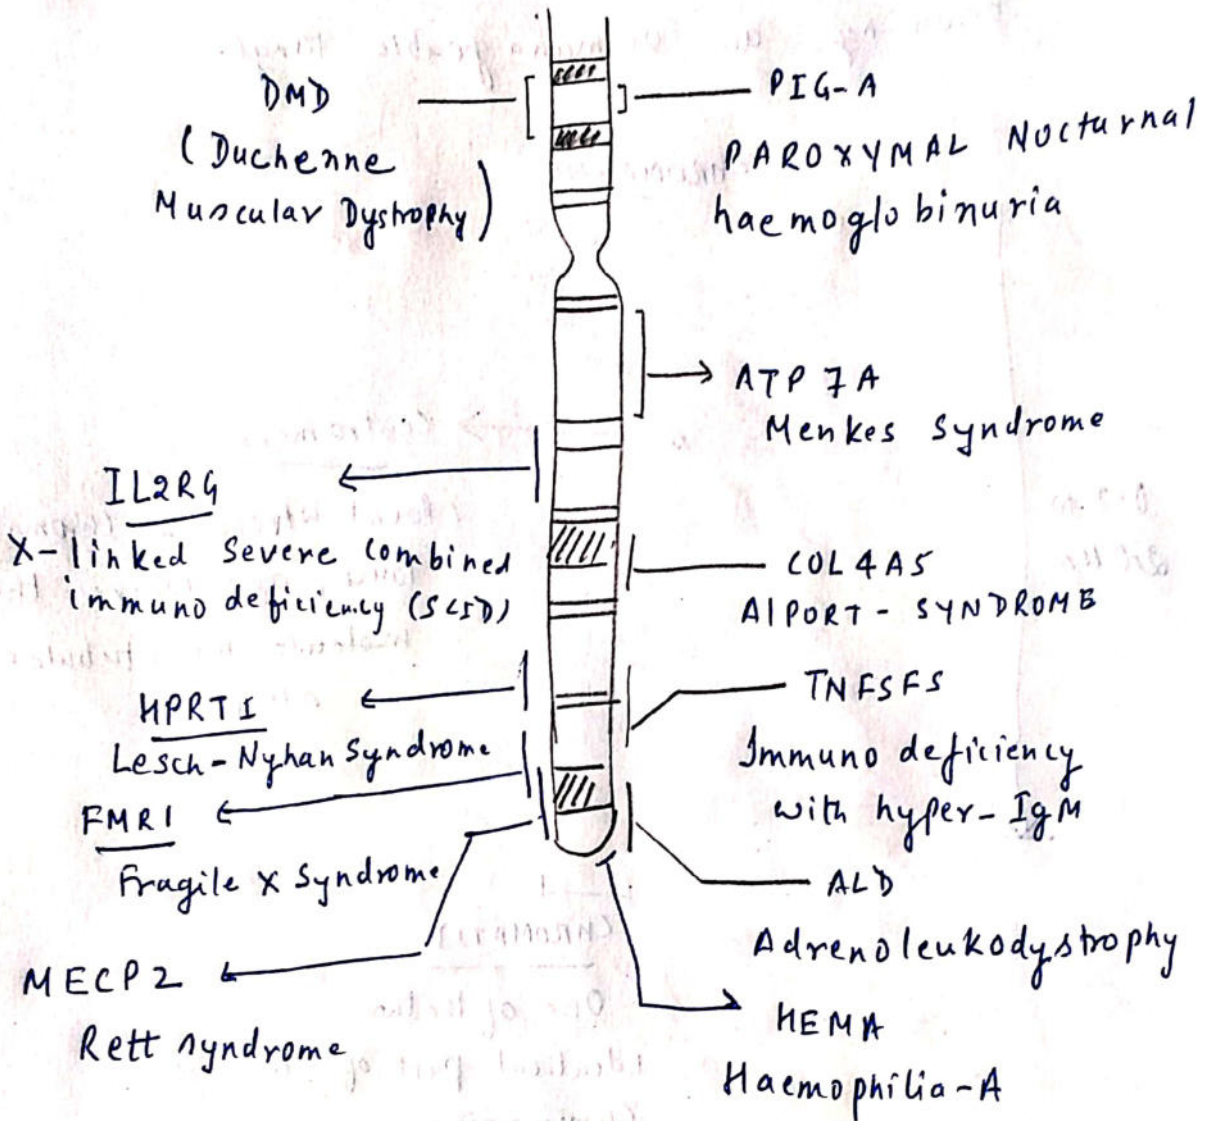 DMD
(Duchenne
Muscular Dystrophy)
PIG-A
PAROXYMAL Nocturnal
haemoglobinuria
ATP7A
Menkes Syndrome
IL2RG
X-linked Severe Combined
immuno deficiency (SCID)
COL4A5
AlPORT - SYNDROME
HPRTI
Lesch-Nyhan Syndrome
TNFSFS
Immuno deficiency
with hyper-IgM
FMRI
Fragile X Syndrome
ALD
Adrenoleukodystrophy
MECP2
Rett syndrome
HEMA
Haemophilia-A